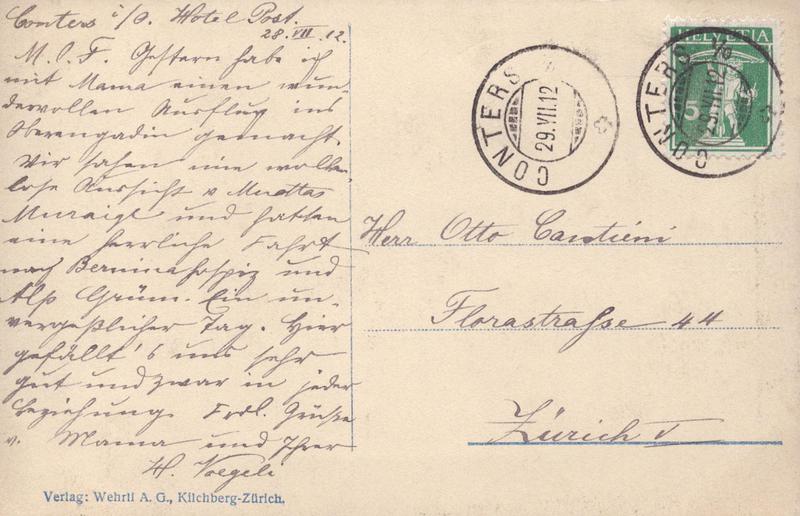 Conters i/O. Hotel Post.
28.VII 12.
M. O. F. Gestern habe ich
mit Mama einen wun-
dervollen Ausflug ins
Oberengadin gemacht.
Wir sahen eine wolken-
lose Aussicht v Muottas
Muraigl und hatten
eine herrliche Fahrt
nach Berninahospiz und
Alp Grüm. Ein un-
vergeßlicher Tag. Hier
gefällt's uns sehr
gut und zwar in jeder
Beziehung. Frdl. Grüsse
v. Mama und Ihrer
H. Voegeli
Verlag: Wehrli A. G., Kilchberg-Zürich.
CONTERS
29.VII.12
HELVETIA
5
CONTERS
29.VII.12
Herr Otto Cantiéni
Florastrasse 44
Zürich V